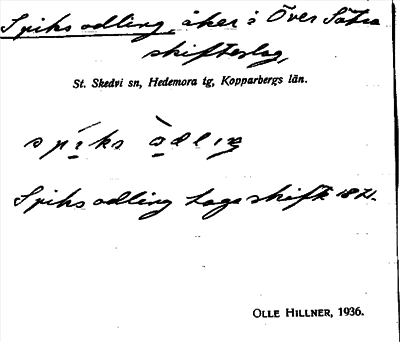 Spiksodling, åker i Över Sätra
skifteslag,
St. Skedvi sn, Hedemora tg, Kopparbergs län.
spiks òdliŋ
Spiksodling Laga skift 1821.
OLLE HILLNER, 1936.